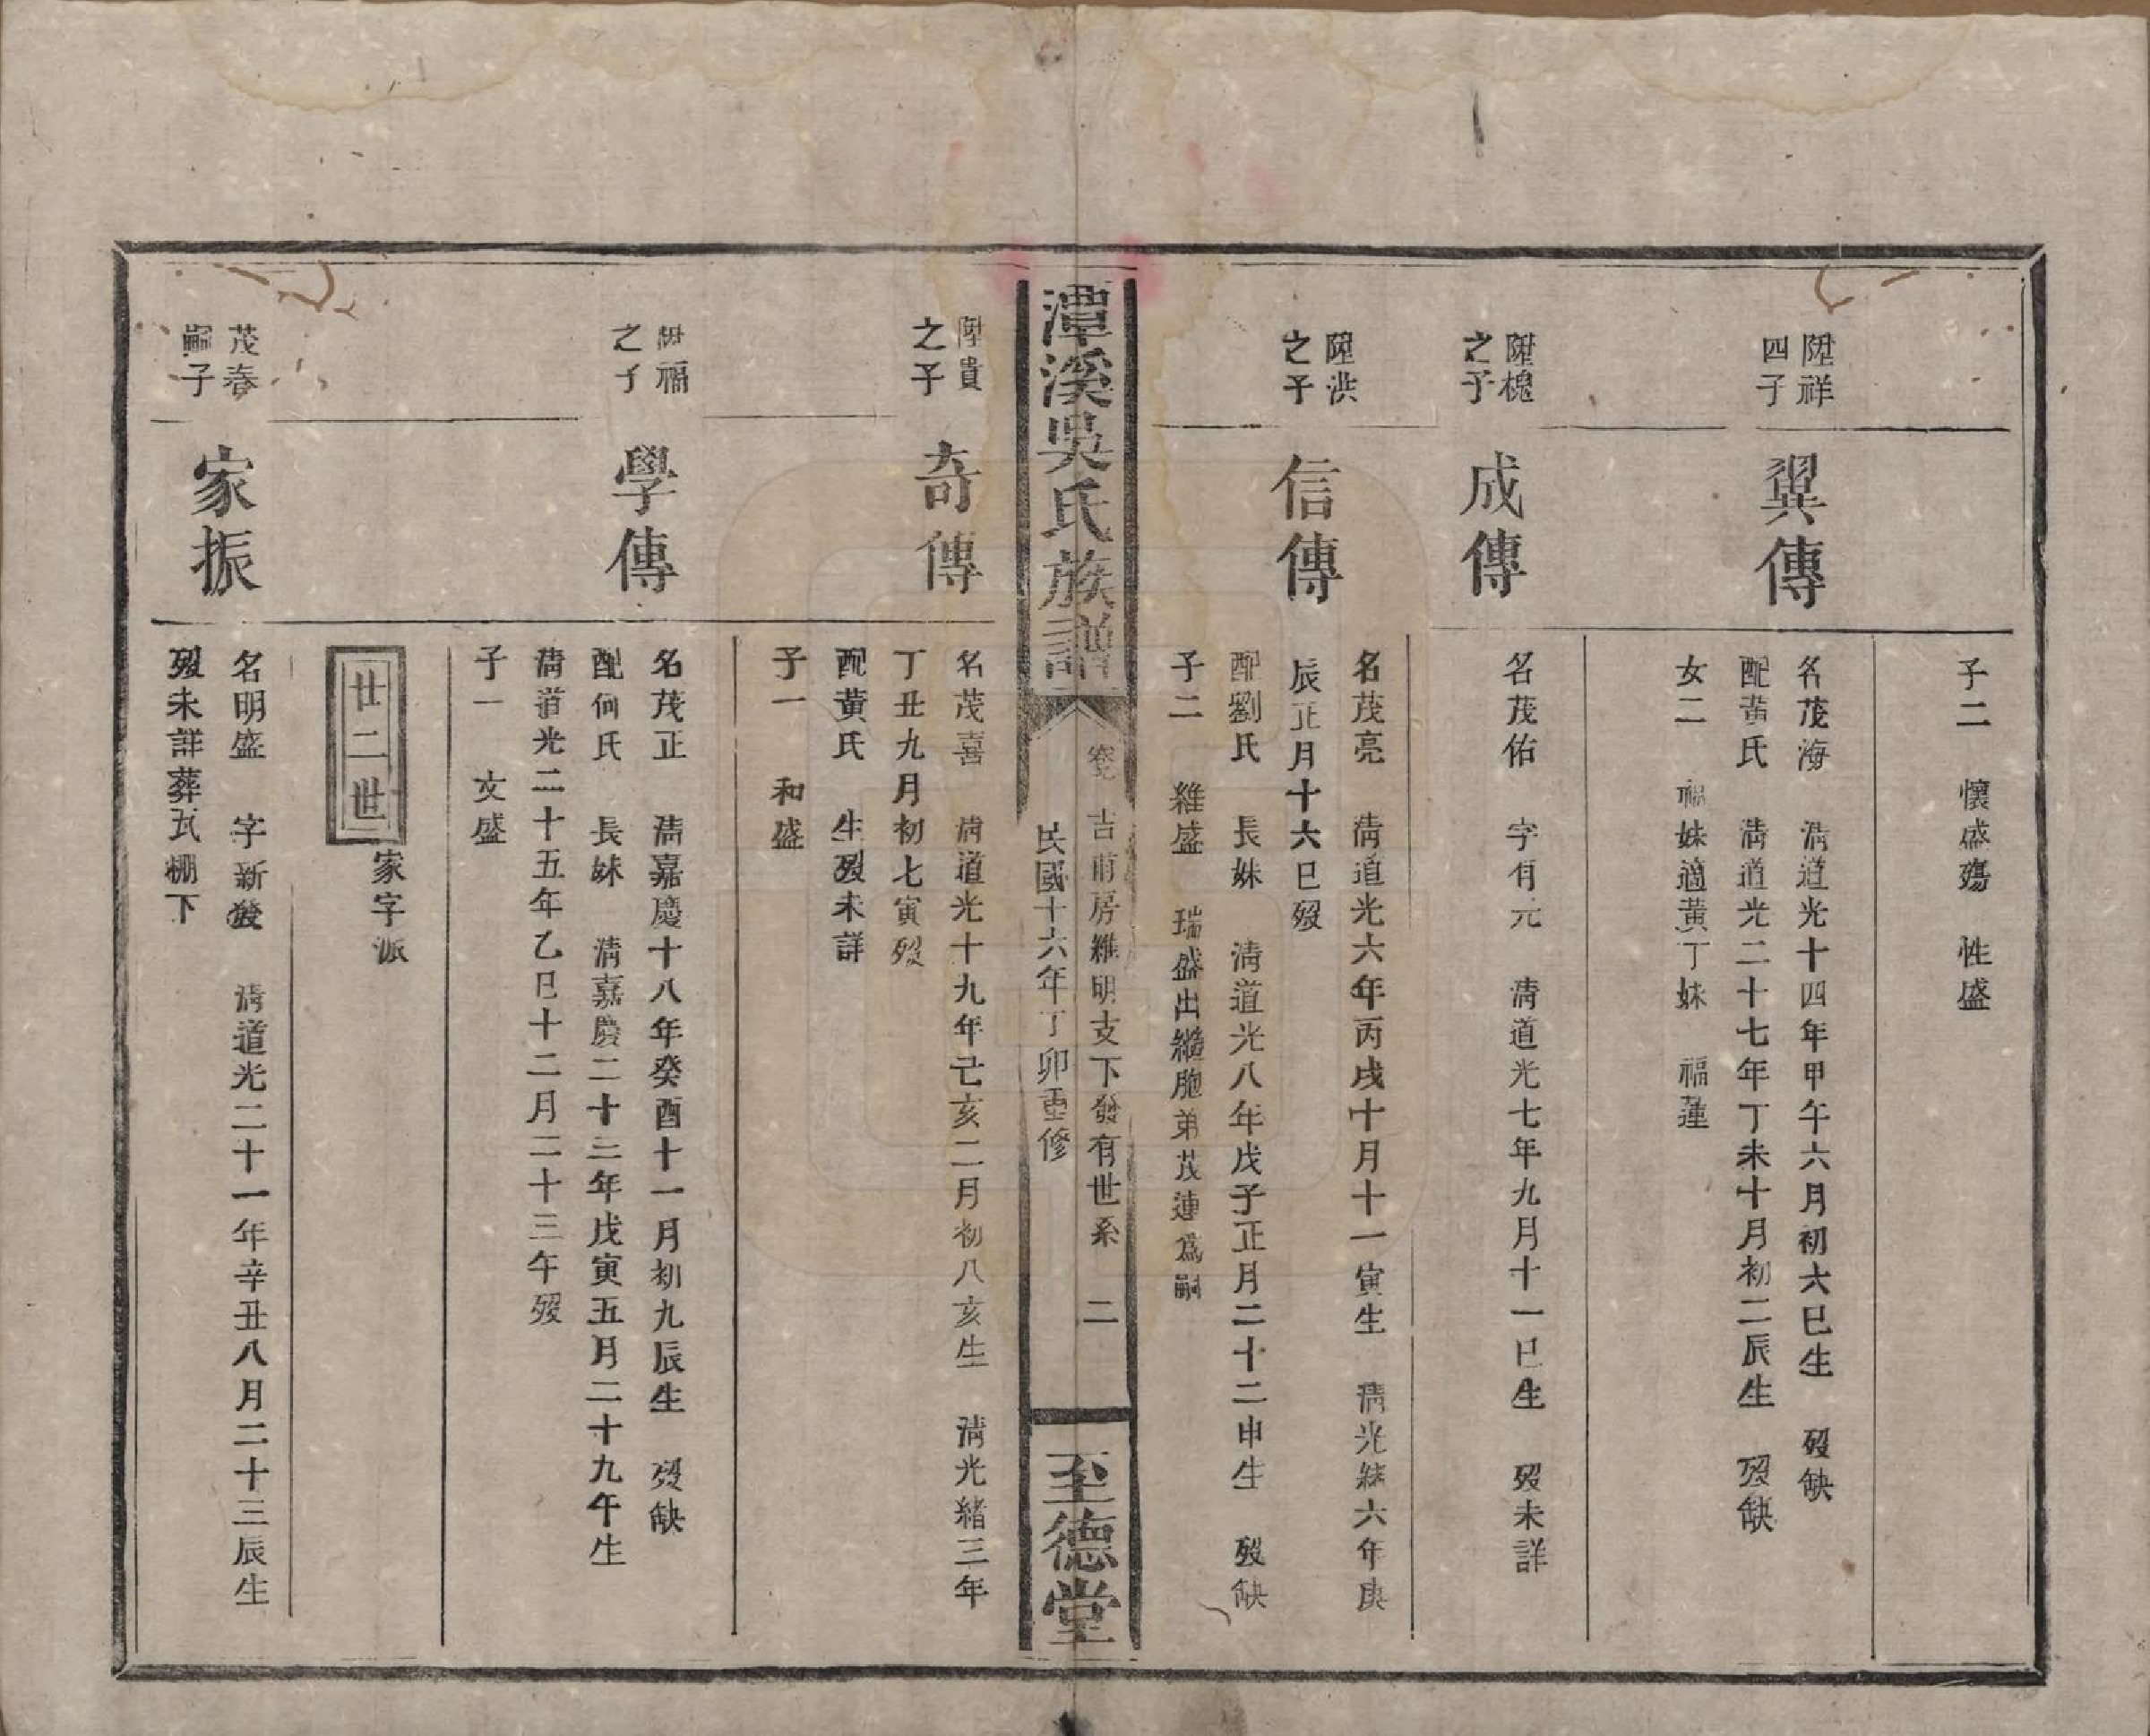 子二　懷盛殤　性盛
陞祥
四子
翼傳
名茂海　清道光十四年甲午六月初六巳生　歿缺
配黃氏　清道光二十七年丁未十月初二辰生　歿缺
女二　福妹適黃丁妹　福蓮
陞槐
之子
成傳
名茂佑　字有元　清道光七年九月十一巳生　歿未詳
陞洪
之子
信傳
名茂亮　清道光六年丙戌十月十一寅生　清光緒六年庚
辰正月十六巳歿
配劉氏　長妹　清道光八年戊子正月二十二申生　歿缺
子二　維盛　瑞盛出繼胞弟茂連爲嗣
潭溪吳氏族譜
吉甫房維明支下發有世系　二
民國十六年丁卯重修
至德堂
陞貴
之子
奇傳
名茂喜　清道光十九年己亥二月初八亥生　清光緒三年
丁丑九月初七寅歿
配黃氏　生歿未詳
子一　和盛
陞福
之子
學傳
名茂正　清嘉慶十八年癸酉十一月初九辰生　歿缺
配何氏　長妹　清嘉慶二十三年戊寅五月二十九午生
清道光二十五年乙巳十二月二十三午歿
子一　文盛
廿二世
家字派
茂春
嗣子
家振
名明盛　字新發　清道光二十一年辛丑八月二十三辰生
歿未詳葬瓦棚下